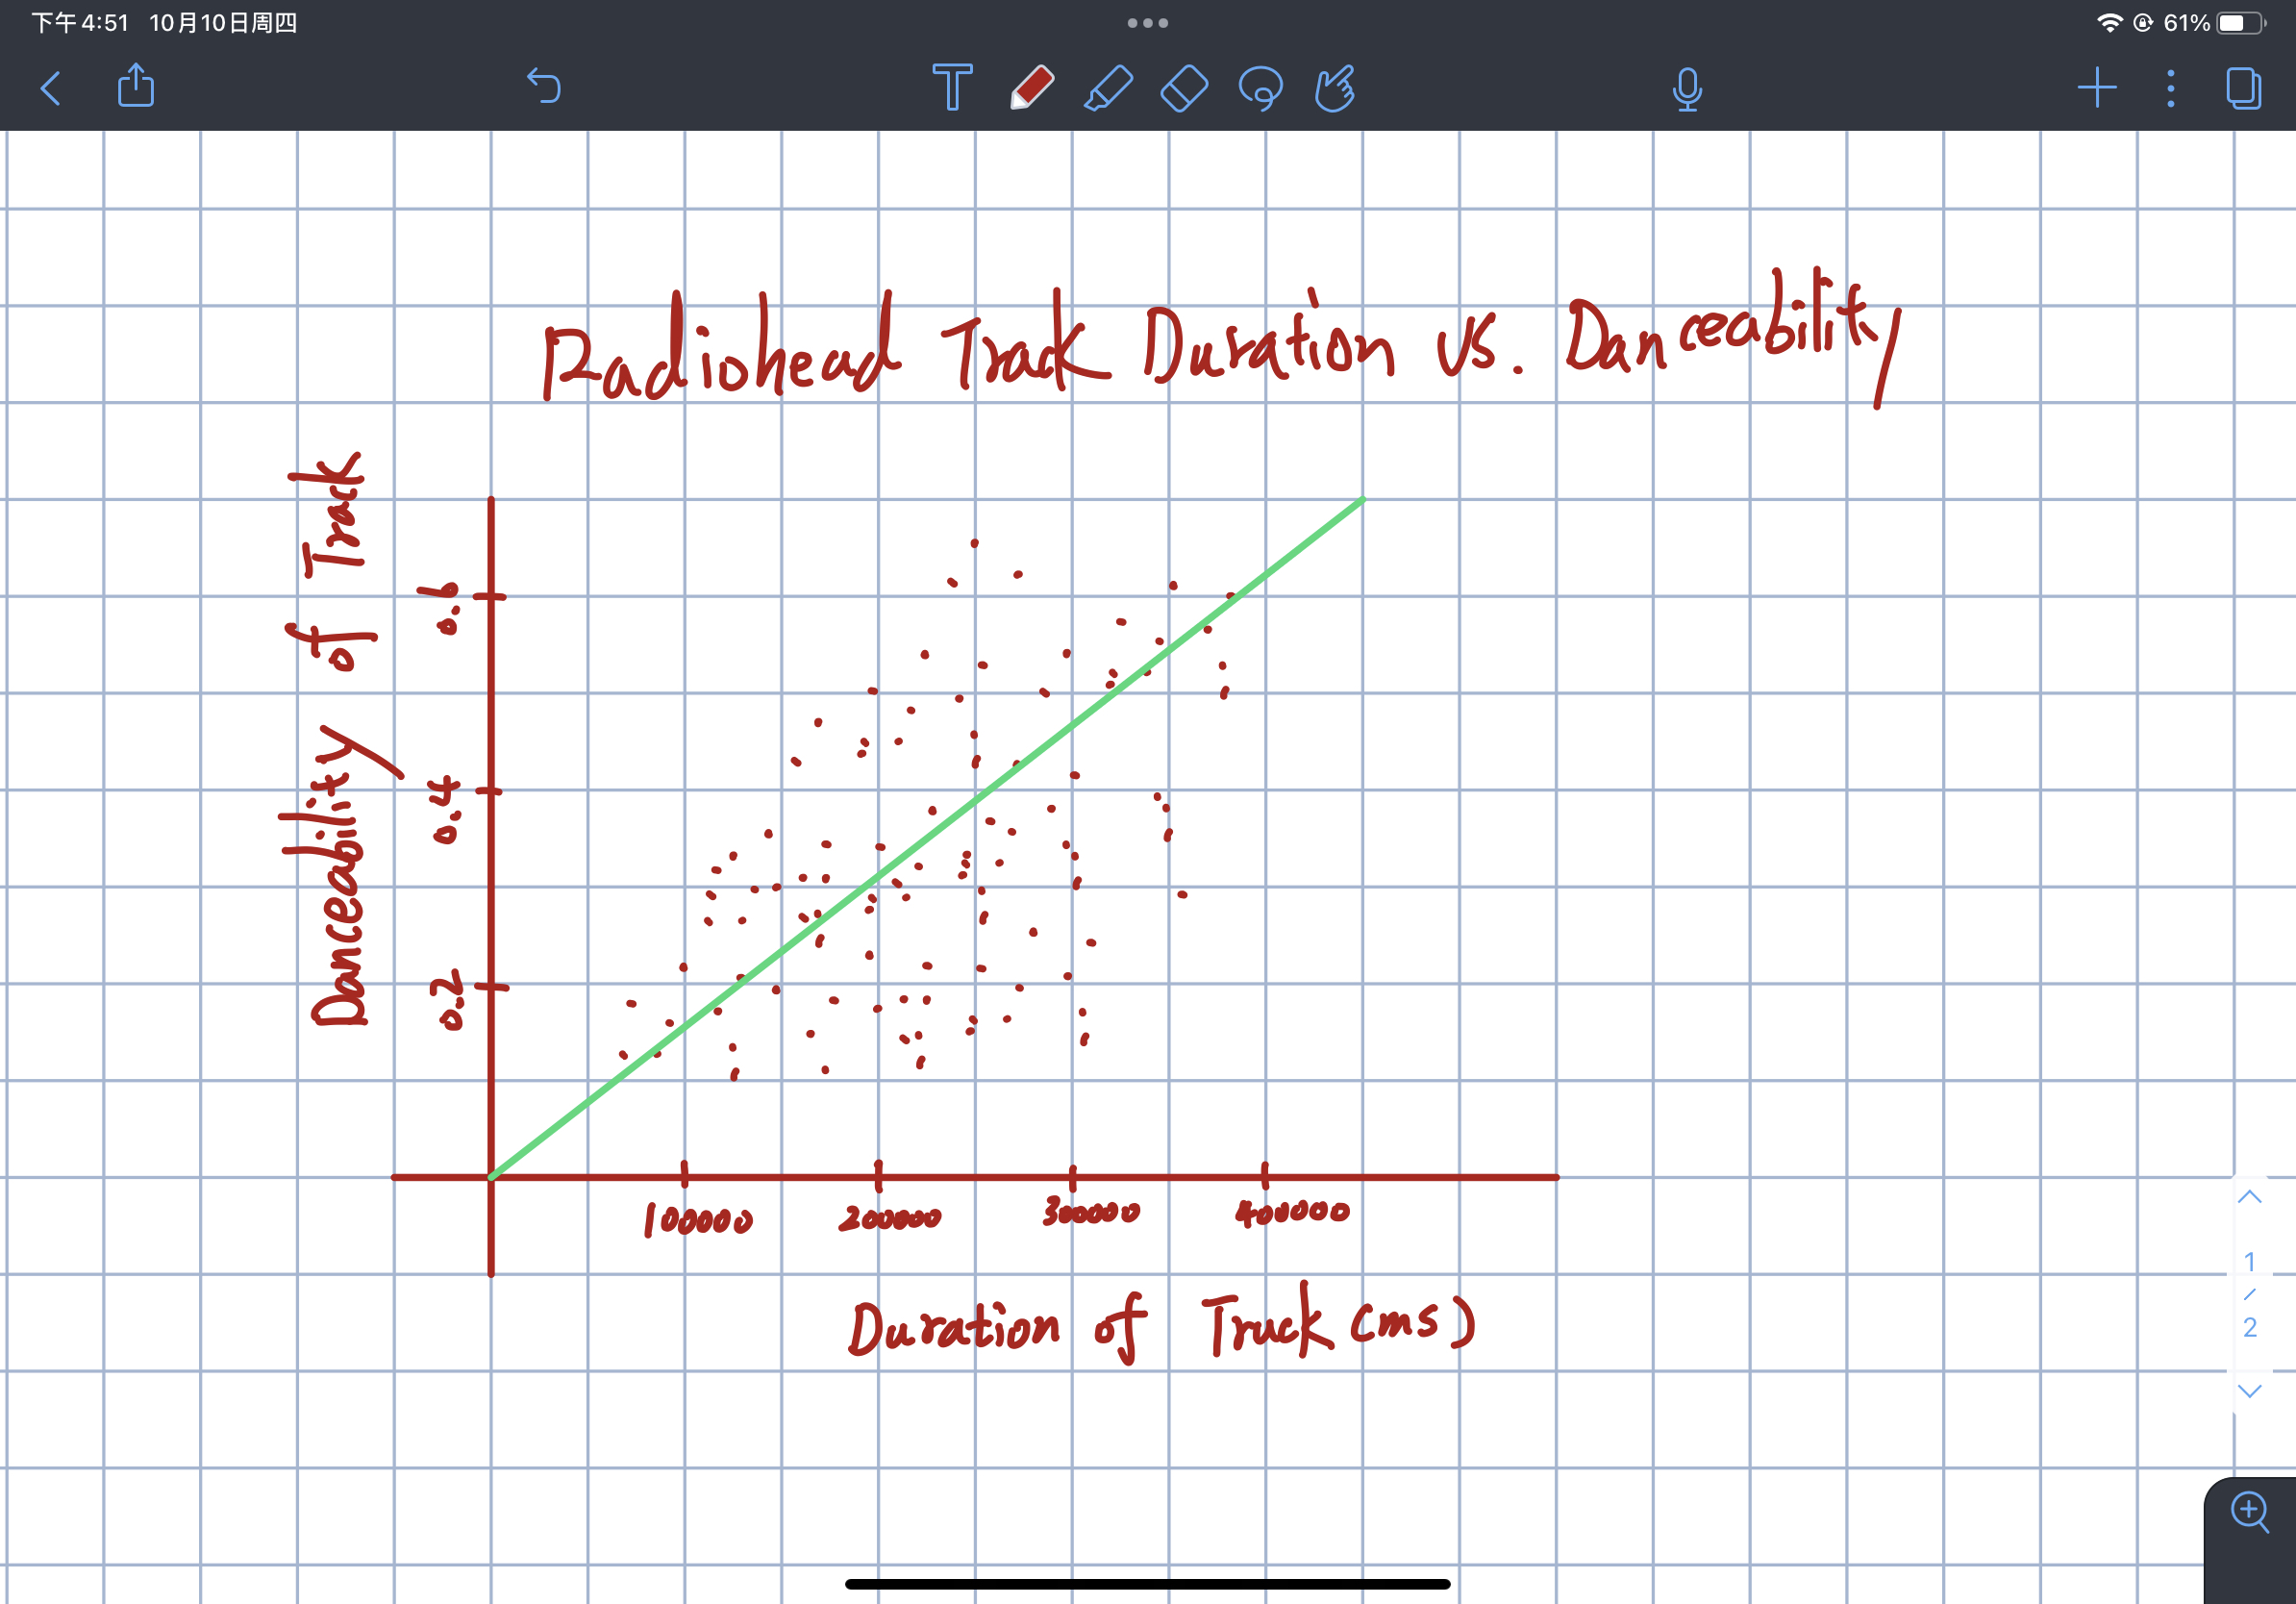 下午4:51 10月10日周四
61%
T
Radiohead Track Duration vs. Danceability
Danceability of Track
0.6
0.4
0.2
100000 200000 300000 400000
Duration of Track (ms)
1
/
2